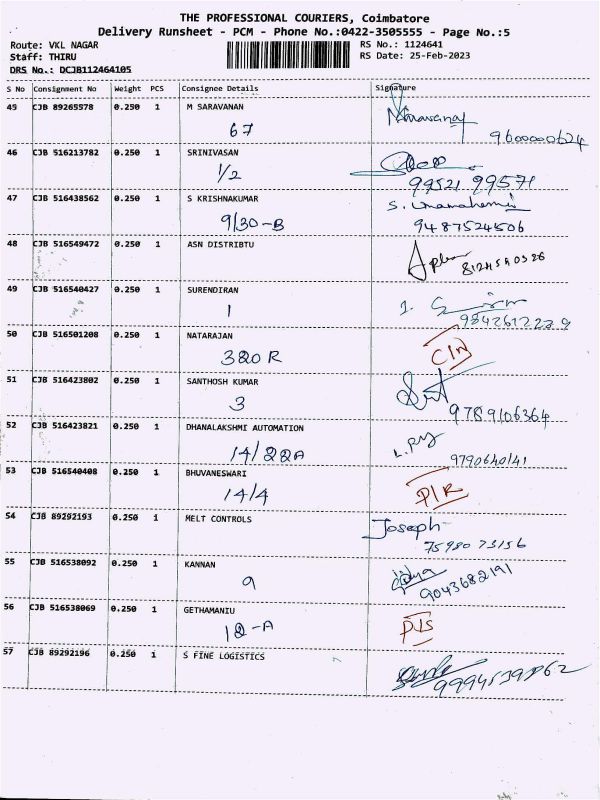 THE PROFESSIONAL COURIERS, Coimbatore
Delivery Runsheet - PCM - Phone No.:0422-3505555 - Page No.:5
Route: VKL NAGAR
Staff: THIRU
DRS No.: DCJB112464105
RS No.: 1124641
RS Date: 25-Feb-2023
S No Consignment No Weight PCS Consignee Details Signature
45 CJB 89265578 0.250 1 M SARAVANAN
67 9600000624
46 CJB 516213782 0.250 1 SRINIVASAN
1/2 99521 99571
47 CJB 516438562 0.250 1 S KRISHNAKUMAR
9/30-B 9487524506
48 CJB 516549472 0.250 1 ASN DISTRIBTU
49 CJB 516540427 0.250 1 SURENDIRAN
1
50 CJB 516501208 0.250 1 NATARAJAN
320 R
51 CJB 516423802 0.250 1 SANTHOSH KUMAR
3 9789106364
52 CJB 516423821 0.250 1 DHANALAKSHMI AUTOMATION
14/22A 9790640141
53 CJB 516540408 0.250 1 BHUVANESWARI
14/4 P/R
54 CJB 89292193 0.250 1 MELT CONTROLS
Joseph
75980 73156
55 CJB 516538092 0.250 1 KANNAN
9 9043682191
56 CJB 516538069 0.250 1 GETHAMANIU
12-A
57 CJB 89292196 0.250 1 S FINE LOGISTICS